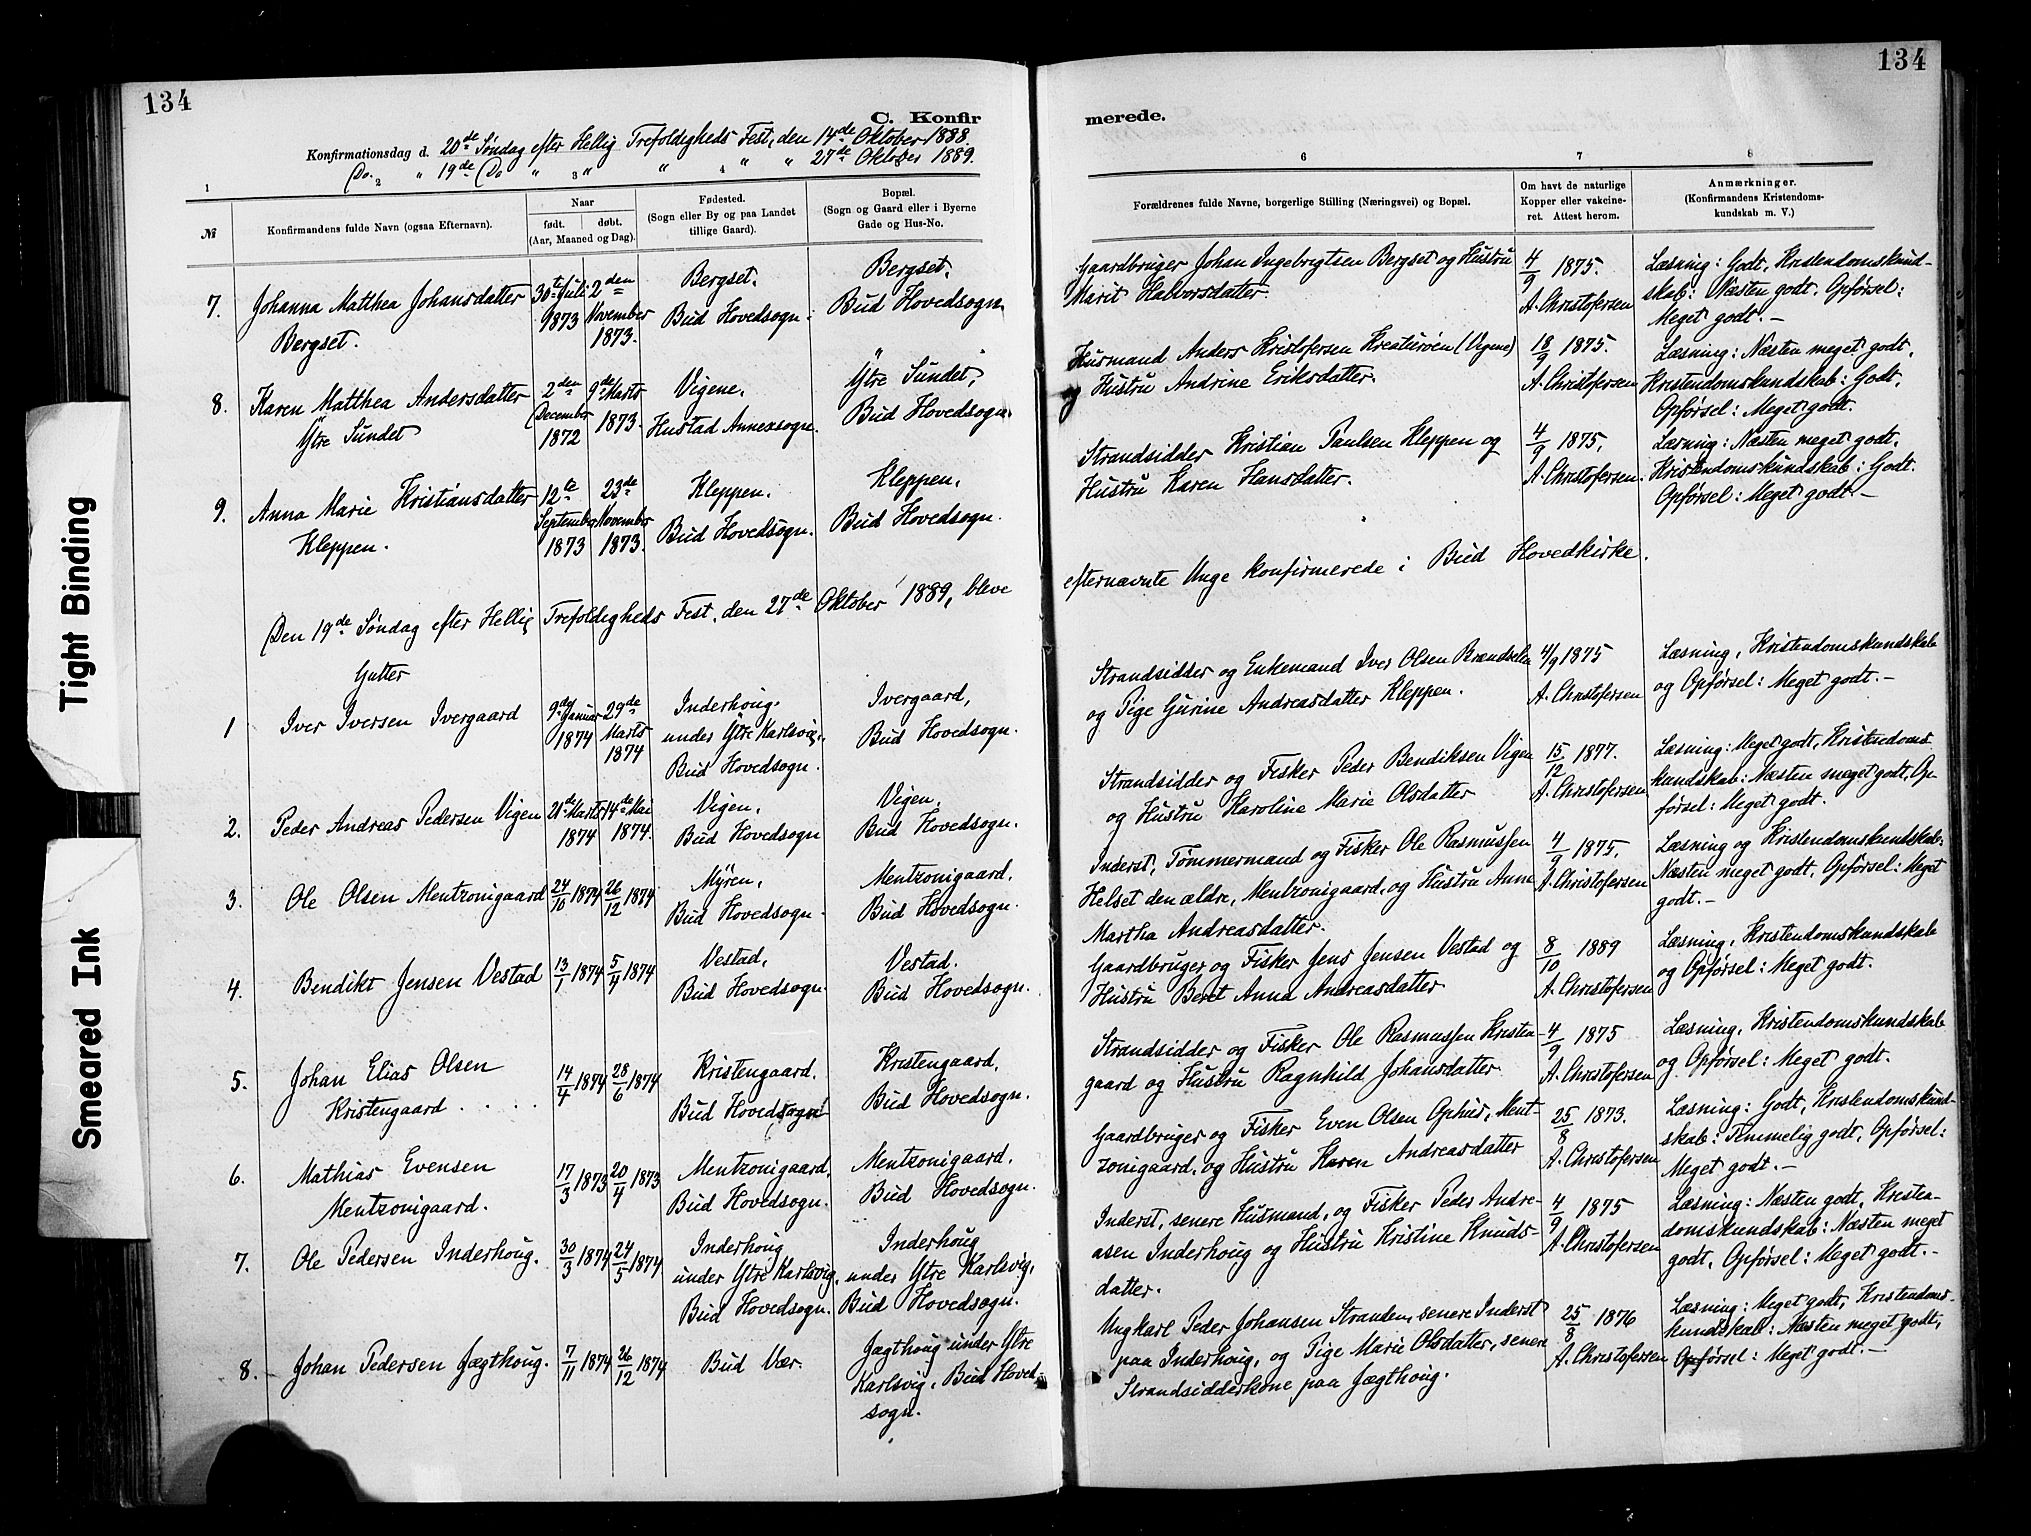 134
C. Konfir
Konfirmationsdag d. 20de Søndag efter Hellig Trefoldigheds Fest, den 14de Oktober 1888.
Do. " 19de Do " " " " " 27de Oktober 1889.
1 2 3 4
№
Konfirmandens fulde Navn (ogsaa Efternavn).
Naar
født. døbt.
(Aar, Maaned og Dag).
Fødested.
(Sogn eller By og paa Landet
tillige Gaard).
Bopæl.
(Sogn og Gaard eller i Byerne
Gade og Hus-No.
7. Johanna Matthea Johansdatter 30te Juli 2den Bergset, Bergset,
Bergset. 1873 November Bud Hovedsogn. Bud Hovedsogn.
1873.
8. Karen Matthea Andersdatter 2den 9de Marts Vigene, Ytre Sundet,
Ytre Sundet December 1873. Hustad Annexsogn. Bud Hovedsogn.
1872
9. Anna Marie Kristiansdatter 12te 23de Kleppen. Kleppen,
Kleppen. September November Bud Hovedsogn. Bud Hovedsogn.
1873 1873.
Den 19de Søndag efter Hellig Trefoldigheds Fest, den 27de Oktober 1889, bleve
Gutter
1 Iver Iversen Ivergaard 9de Januar 29de Inderhoug Ivergaard,
1874 Marts under Ytre Karlsvig, Bud Hovedsogn.
1874 Bud Hovedsogn.
2. Peder Andreas Pedersen Vigen 21de Marts 14de Mai Vigen, Vigen,
1874 1874. Bud Hovedsogn Bud Hovedsogn.
3. Ole Olsen Mentzonigaard 24/10 1874 26/12 1874 Myren, Mentzonigaard,
Bud Hovedsogn. Bud Hovedsogn.
4. Bendikt Jensen Vestad 13/1 1874 5/4 1874 Vestad, Vestad.
Bud Hovedsogn. Bud Hovedsogn.
5. Johan Elias Olsen 14/4 1874 28/6 1874 Kristengaard, Kristengaard,
Kristengaard . . . . Bud Hovedsogn Bud Hovedsogn.
6. Mathias Evensen 17/3 1873 20/4 1873 Mentzonigaard, Mentzonigaard,
Mentzonigaard. Bud Hovedsogn. Bud Hovedsogn.
7. Ole Pedersen Inderhoug. 30/3 1874 24/5 1874 Inderhoug Inderhoug
under Ytre Karlsvig, under Ytre Karlsvig,
Bud Hovedsogn. Bud Hovedsogn.
8. Johan Pedersen Jægthoug. 7/11 1874 26/12 1874 Bud Vær. Jægthoug under Ytre
Karlsvig, Bud Hoved-
sogn.
Tight Binding
Smeared Ink
134
merede.
6 7 8
Forældrenes fulde Navne, borgerlige Stilling (Næringsvei) og Bopæl.
Om havt de naturlige
Kopper eller vakcine-
ret. Attest herom.
Anmærkninger.
(Konfirmandens Kristendoms-
kundskab m. V.)
Gaardbruger Johan Ingebrigtsen Bergset og Hustru 4/9 1875. Læsning: Godt, Kristendomskund-
Marit Halvorsdatter. A. Christofersen skab: Næsten godt. Opførsel:
Meget godt.-
Husmand Anders Kristofersen Kreaturøen (Vigene) 18/9 1875. Læsning: Næsten meget godt,
og Hustru Andrine Eriksdatter. A. Christofersen Kristendomskundskab: Godt,
Opførsel: Meget godt.
Strandsidder Kristian Paulsen Kleppen og 4/9 1875, Læsning: Næsten meget godt.
Hustru Karen Hansdatter. A. Christofersen. Kristendomskundskab: Godt.
Opførsel: Meget godt.-
efternævnte Unge konfirmerede i Bud Hovedkirke.
Strandsidder og Enkemand Iver Olsen Brændselen 4/9 1875 Læsning, Kristendomskundskab
og Pige Gurine Andreasdatter Kleppen. A. Christofersen og Opførsel: Meget godt.-
Strandsidder og Fisker Peder Bendiksen Vigen 15/12 1877. Læsning: Meget godt, Kristendoms
og Hustru Karoline Marie Olsdatter A. Christofersen kundskab: Næsten meget godt, Op-
førsel: Meget godt.
Inderst, Tømmermand og Fisker Ole Rasmussen 4/9 1875. Læsning og Kristendomskundskab:
Helset den ældre, Mentzonigaard, og Hustru Anne A. Christofersen Næsten meget godt, Opførsel: Meget
Martha Andreasdatter. godt.-
Gaardbruger og Fisker Jens Jensen Vestad og 8/10 1889 Læsning, Kristendomskundskab
Hustru Beret Anna Andreasdatter A. Christofersen og Opførsel: Meget godt.
Strandsidder og Fisker Ole Rasmussen Kristen- 4/9 1875 Læsning, Kristendomskundskab
gaard og Hustru Ragnhild Johansdatter A. Christofersen og Opførsel: Meget godt.
Gaardbruger og Fisker Even Olsen Ophus, Ment- 25/8 1873. Læsning: Godt, Kristendomskund-
zonigaard, og Hustru Karen Andreasdatter A. Christofersen skab: Temmelig godt, Opførsel:
Meget godt.-
Inderst, senere Husmand, og Fisker Peder Andre- 4/9 1875 Læsning: Næsten godt, Kristen-
asen Inderhoug og Hustru Kristine Knuds- A. Christofersen domskundskab: Næsten meget
datter. godt, Opførsel: Meget godt.-
Ungkarl Peder Johansen Stranden, senere Inderst 25/8 1876 Læsning: Meget godt, Kristendoms-
paa Inderhoug, og Pige Marie Olsdatter, senere A. Christofersen kundskab: Næsten meget godt,
Strandsidderkone paa Jægthoug. Opførsel: Meget godt.-